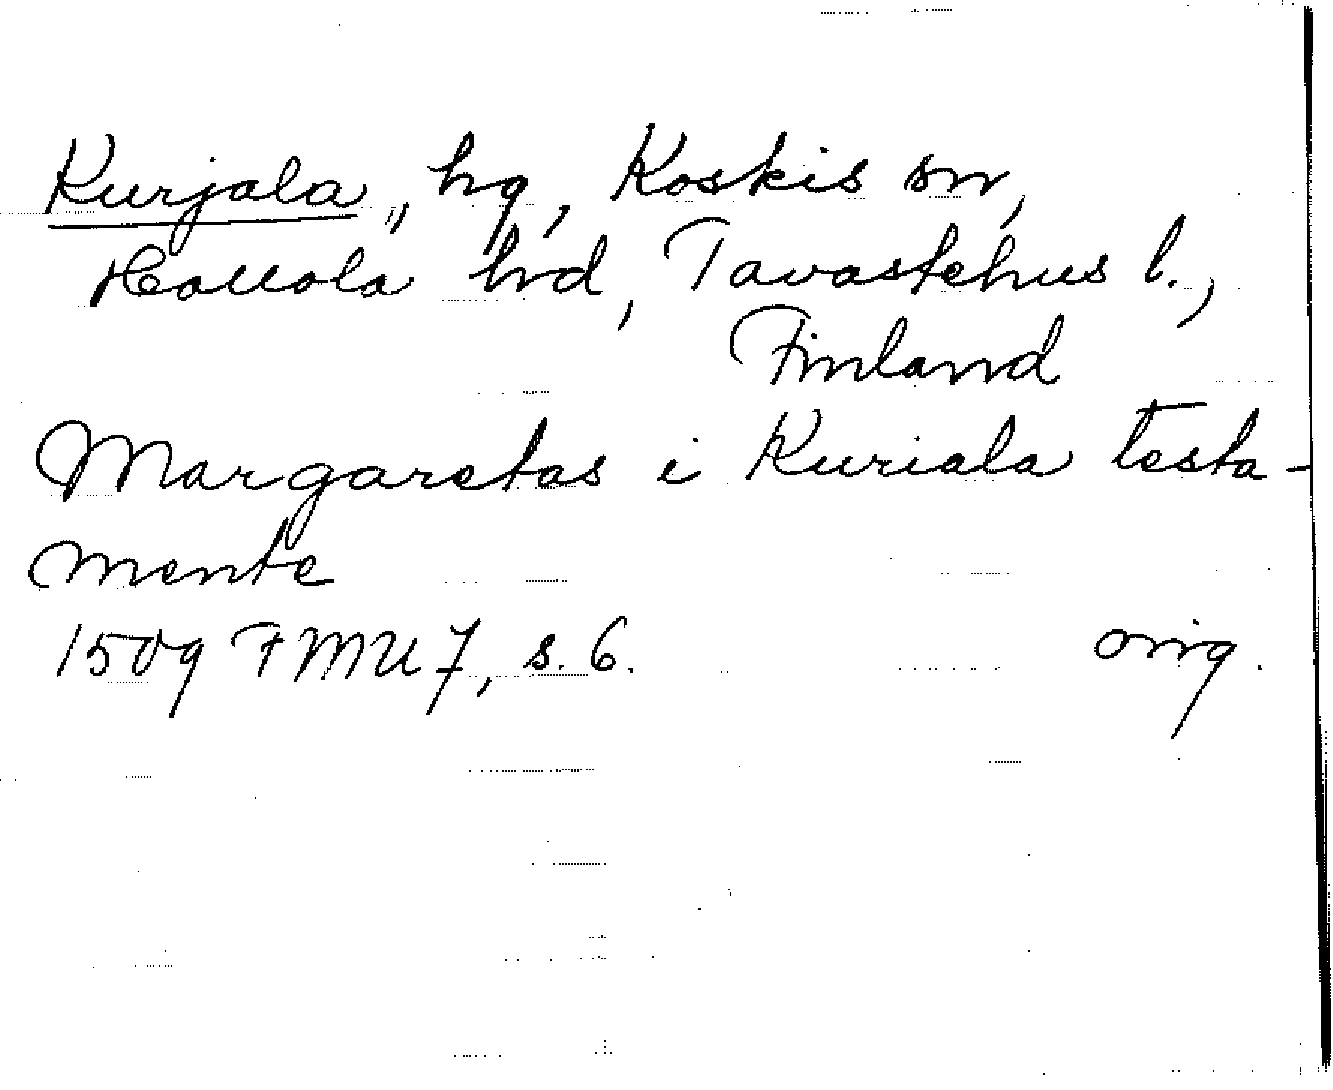 Kurjala,, hg, Koskis sn,
Hollola hrd, Tavastehus l.,
Finland
Margaretas i Kuriala testa-
mente
1509 FMU 7, s. 6. orig.